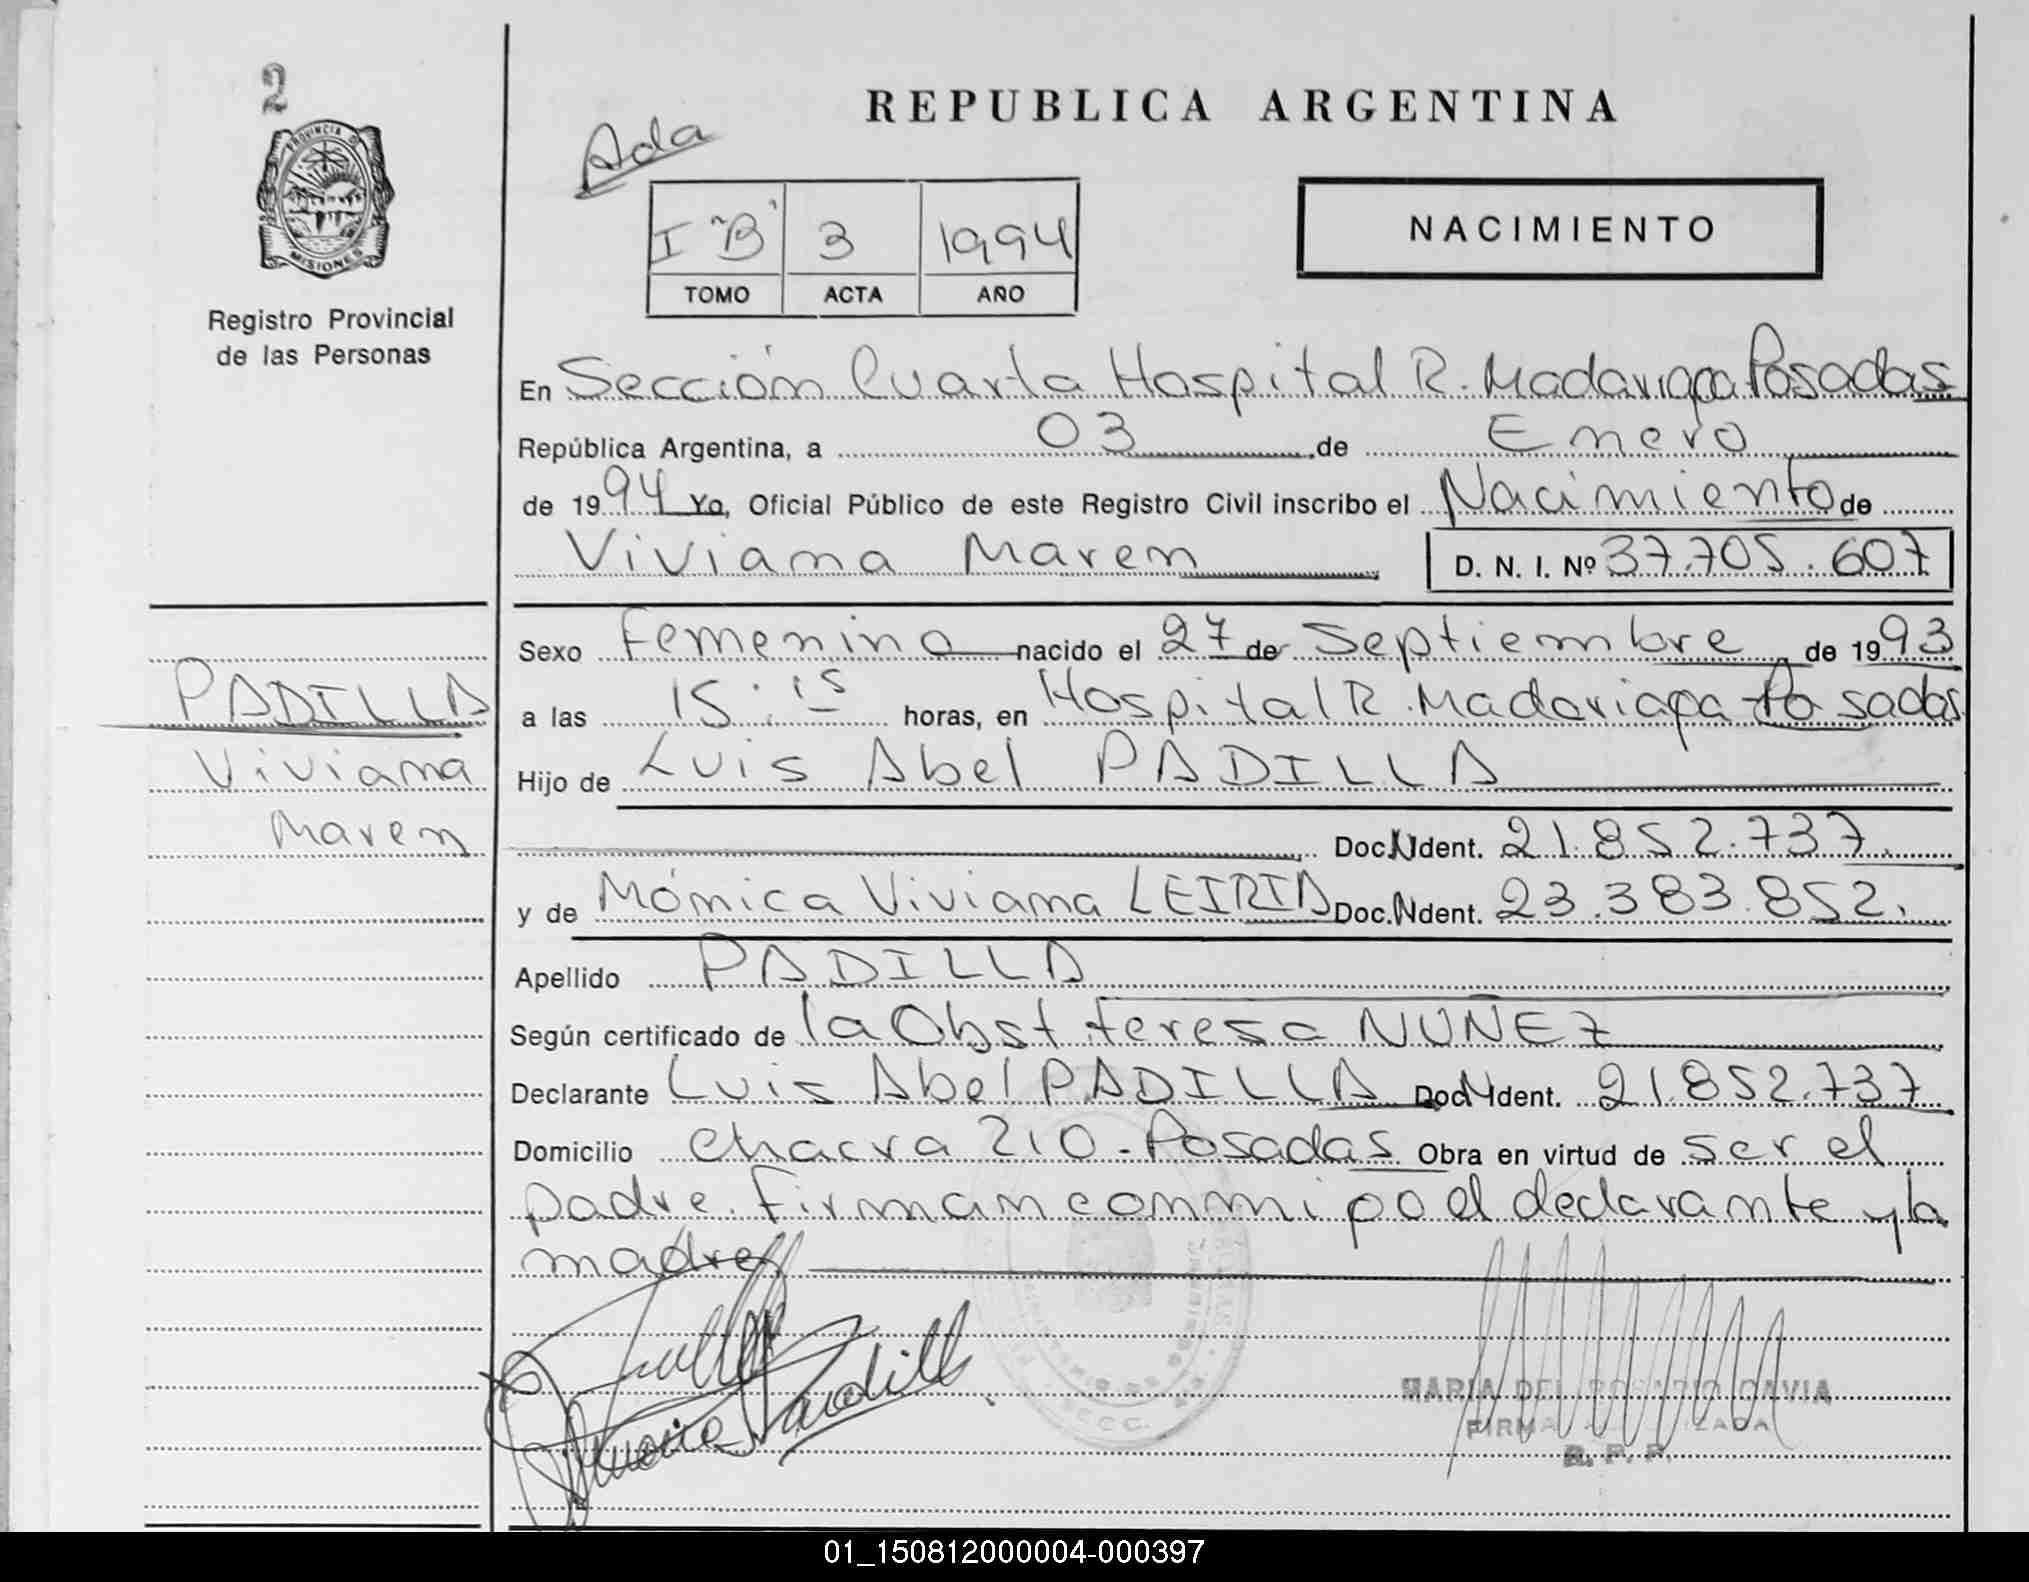 2
PROVINCIA D
MISIONES
Registro Provincial
de las Personas
PADILLA
Viviana
Maren
REPUBLICA ARGENTINA
Ada
I "B" 3 1994
TOMO ACTA AÑO
NACIMIENTO
En Sección Cuarta Hospital R. Madariaga Posadas
República Argentina, a 03 de Enero
de 1994 Yo, Oficial Público de este Registro Civil inscribo el Nacimiento de
Viviana Maren D. N. I. Nº 37.705.607
Sexo Femenino nacido el 27 de Septiembre de 1993
a las 15:15 horas, en Hospital R. Madariaga Posadas
Hijo de Luis Abel PADILLA
Doc. N Ident. 21.852.737.
y de Mónica Viviana LEIRIA Doc. N Ident. 23.383.852.
Apellido PADILLA
Según certificado de la Obst. Teresa NUÑEZ
Declarante Luis Abel PADILLA Doc N Ident. 21.852.737
Domicilio Chacra 210 - Posadas Obra en virtud de ser el
padre. Firman conmigo el declarante y la
madre
MARIA DEL ROSARIO GAVIA
01_150812000004-000397